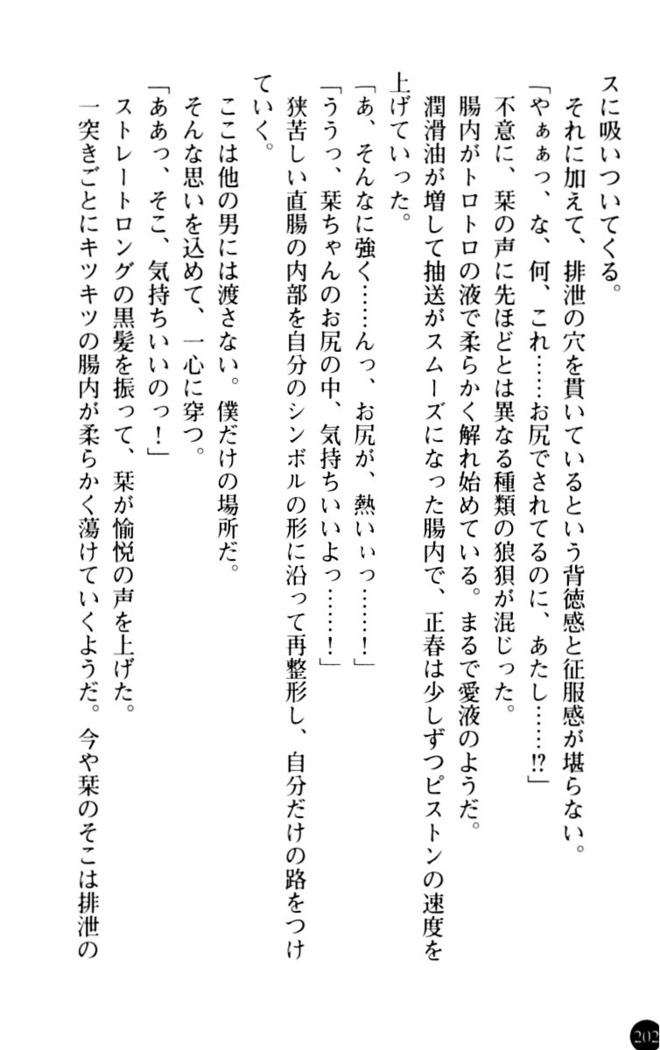 スに吸いついてくる。
それに加えて、排泄の穴を貫いているという背徳感と征服感が堪らない。
「やぁぁっ、な、何、これ……お尻でされてるのに、あたし……!?」
不意に、栞の声に先ほどとは異なる種類の狼狽が混じった。
腸内がトロトロの液で柔らかく解れ始めている。まるで愛液のようだ。
潤滑油が増して抽送がスムーズになった腸内で、正春は少しずつピストンの速度を
上げていった。
「あ、そんなに強く……んっ、お尻が、熱いぃっ……!」
「ううっ、栞ちゃんのお尻の中、気持ちいいよっ……!」
狭苦しい直腸の内部を自分のシンボルの形に沿って再整形し、自分だけの路をつけ
ていく。
ここは他の男には渡さない。僕だけの場所だ。
そんな思いを込めて、一心に穿つ。
「ああっ、そこ、気持ちいいのっ!」
ストレートロングの黒髪を振って、栞が愉悦の声を上げた。
一突きごとにキツキツの腸内が柔らかく蕩けていくようだ。今や栞のそこは排泄の
202